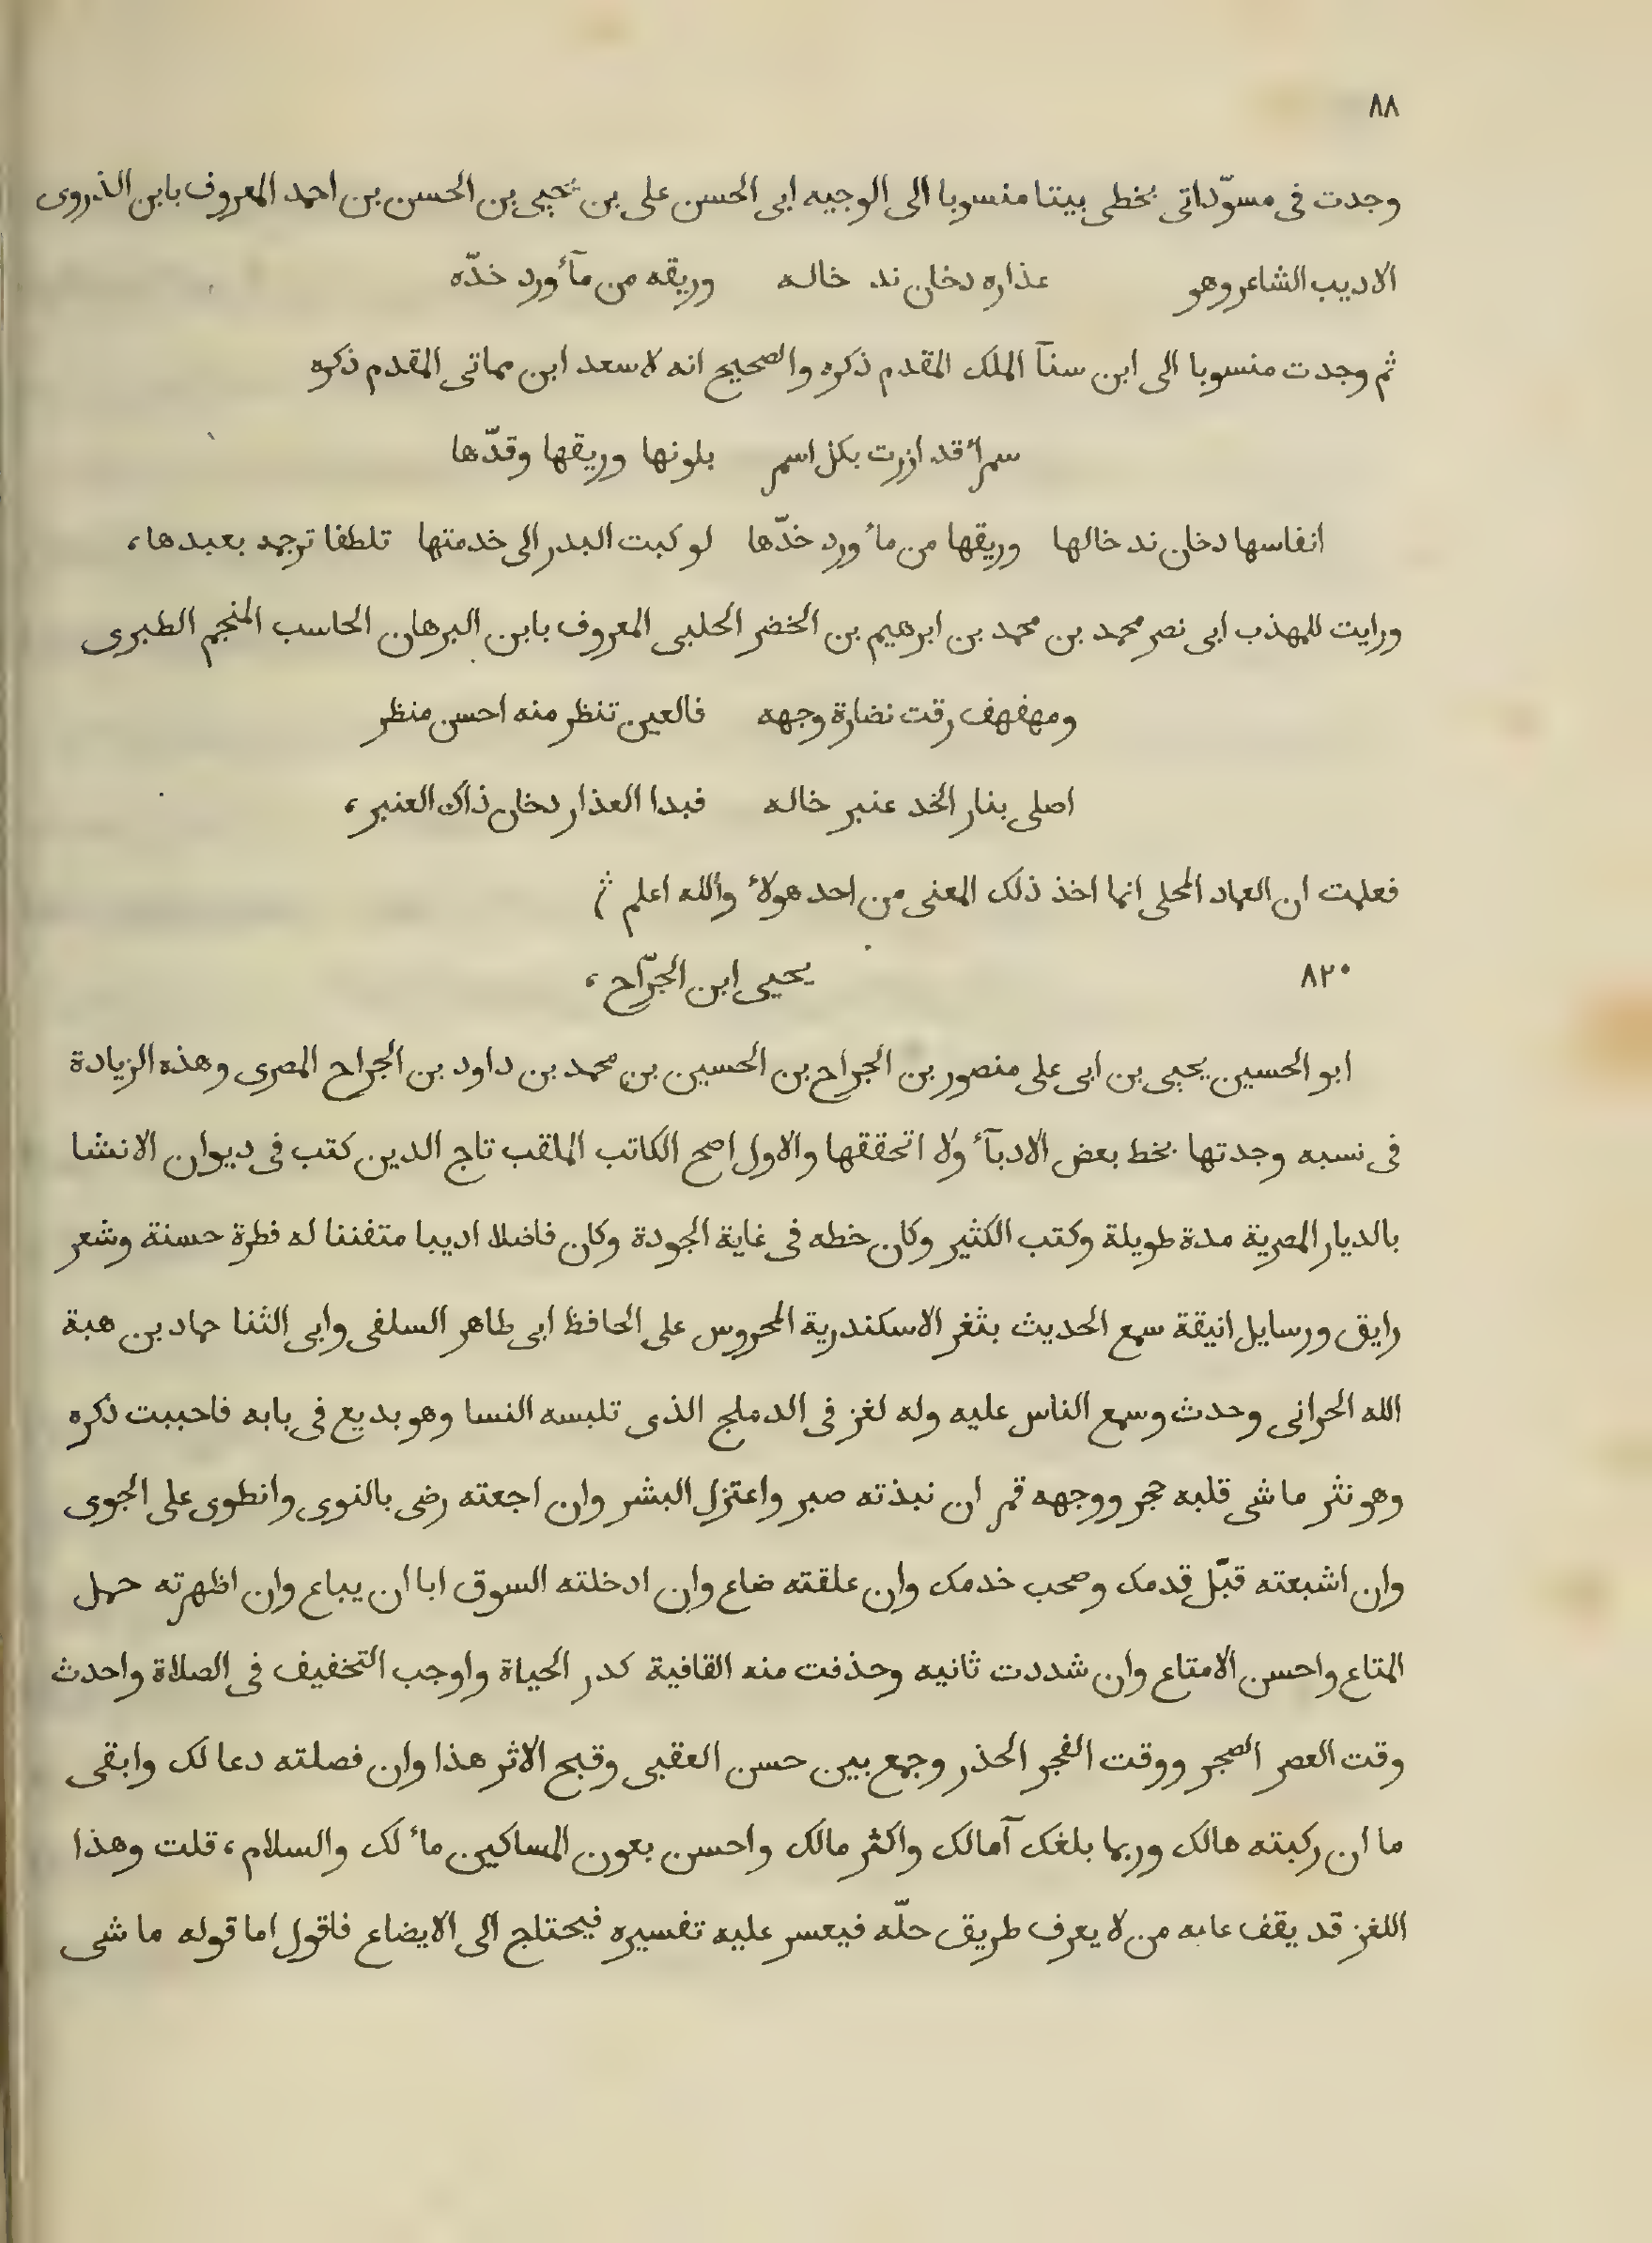 ٨٨
وجدت فى مسوّداتى بخطى بيتا منسوبا الى الوجيه ابى الحسن على بن يحيى بن الحسن بن احمد المعروف بابن الذروى
الاديب الشاعر وهو عذاره دخان ند خاله وريقه من مآ ورد خدّه
ثم وجدت منسوبا الى ابن سنآ الملك المقدم ذكره والصحيح انه لاسعد ابن مماتى المقدم ذكره
سمرأ قد ازرت بكل اسمر بلونها وريقها وقدّها
انفاسها دخان ند خالها وريقها من مأ ورد خدّها لو كبت البدر الى خدمتها تلطفا ترجمه بعبدها،
ورايت للمهذب ابى نصر محمد بن محمد بن ابرهيم بن الخضر الحلبى المعروف بابن البرهان الحاسب المنجم الطبرى
ومهفهف رقت نضارة وجهه فالعين تنظر منه احسن منظر
اصلى بنار الخد عنبر خاله فبدا العذار دخان ذاك العنبر،
فعلمت ان العماد المحلى انما اخذ ذلك المعنى من احد هولأ والله اعلم ۞
٨٢٠ يحيى ابن الجرّاح،
ابو الحسين يحيى بن ابى على منصور بن الجراح بن الحسين بن محمد بن داود بن الجراح المصرى وهذه الزيادة
فى نسبه وجدتها بخط بعض الادبآ ولا اتحققها والاول اصح الكاتب الملقب تاج الدين كتب فى ديوان الانشا
بالديار المصرية مدة طويلة وكتب الكثير وكان خطه فى غاية الجودة وكان فاضلا اديبا متفننا له فطرة حسنة وشعر
رايق ورسايل انيقة سمع الحديث بثغر الاسكندرية المحروس على الحافظ ابى طاهر السلفى وابى الثنا حماد بن هبة
الله الحرانى وحدث وسمع الناس عليه وله لغز فى الدملج الذى تلبسه النسا وهو بديع فى بابه فاحببت ذكره
وهو نثر ما شى قلبه حجر ووجهه قمر ان نبذته صبر واعتزل البشر وان اجعته رضى بالنوى وانطوى على الجوى
وان اشبعته قبّل قدمك وصحب خدمك وان علقته ضاع وان ادخلته السوق ابا ان يباع وان اظهرته حمل
المتاع واحسن الامتاع وان شددت ثانيه وحذفت منه القافية كدر الحياة واوجب التخفيف فى الصلاة واحدث
وقت العصر الضجر ووقت الفجر الحذر وجمع بين حسن العقبى وقبح الاثر هذا وان فصلته دعا لك وابقى
ما ان ركبته هالك وربما بلغك آمالك واكثر مالك واحسن بعون المساكين مأ لك والسلام، قلت وهذا
اللغز قد يقف عليه من لا يعرف طريق حلّه فيعسر عليه تفسيره فيحتاج الى الايضاع فاقول اما قوله ما شى